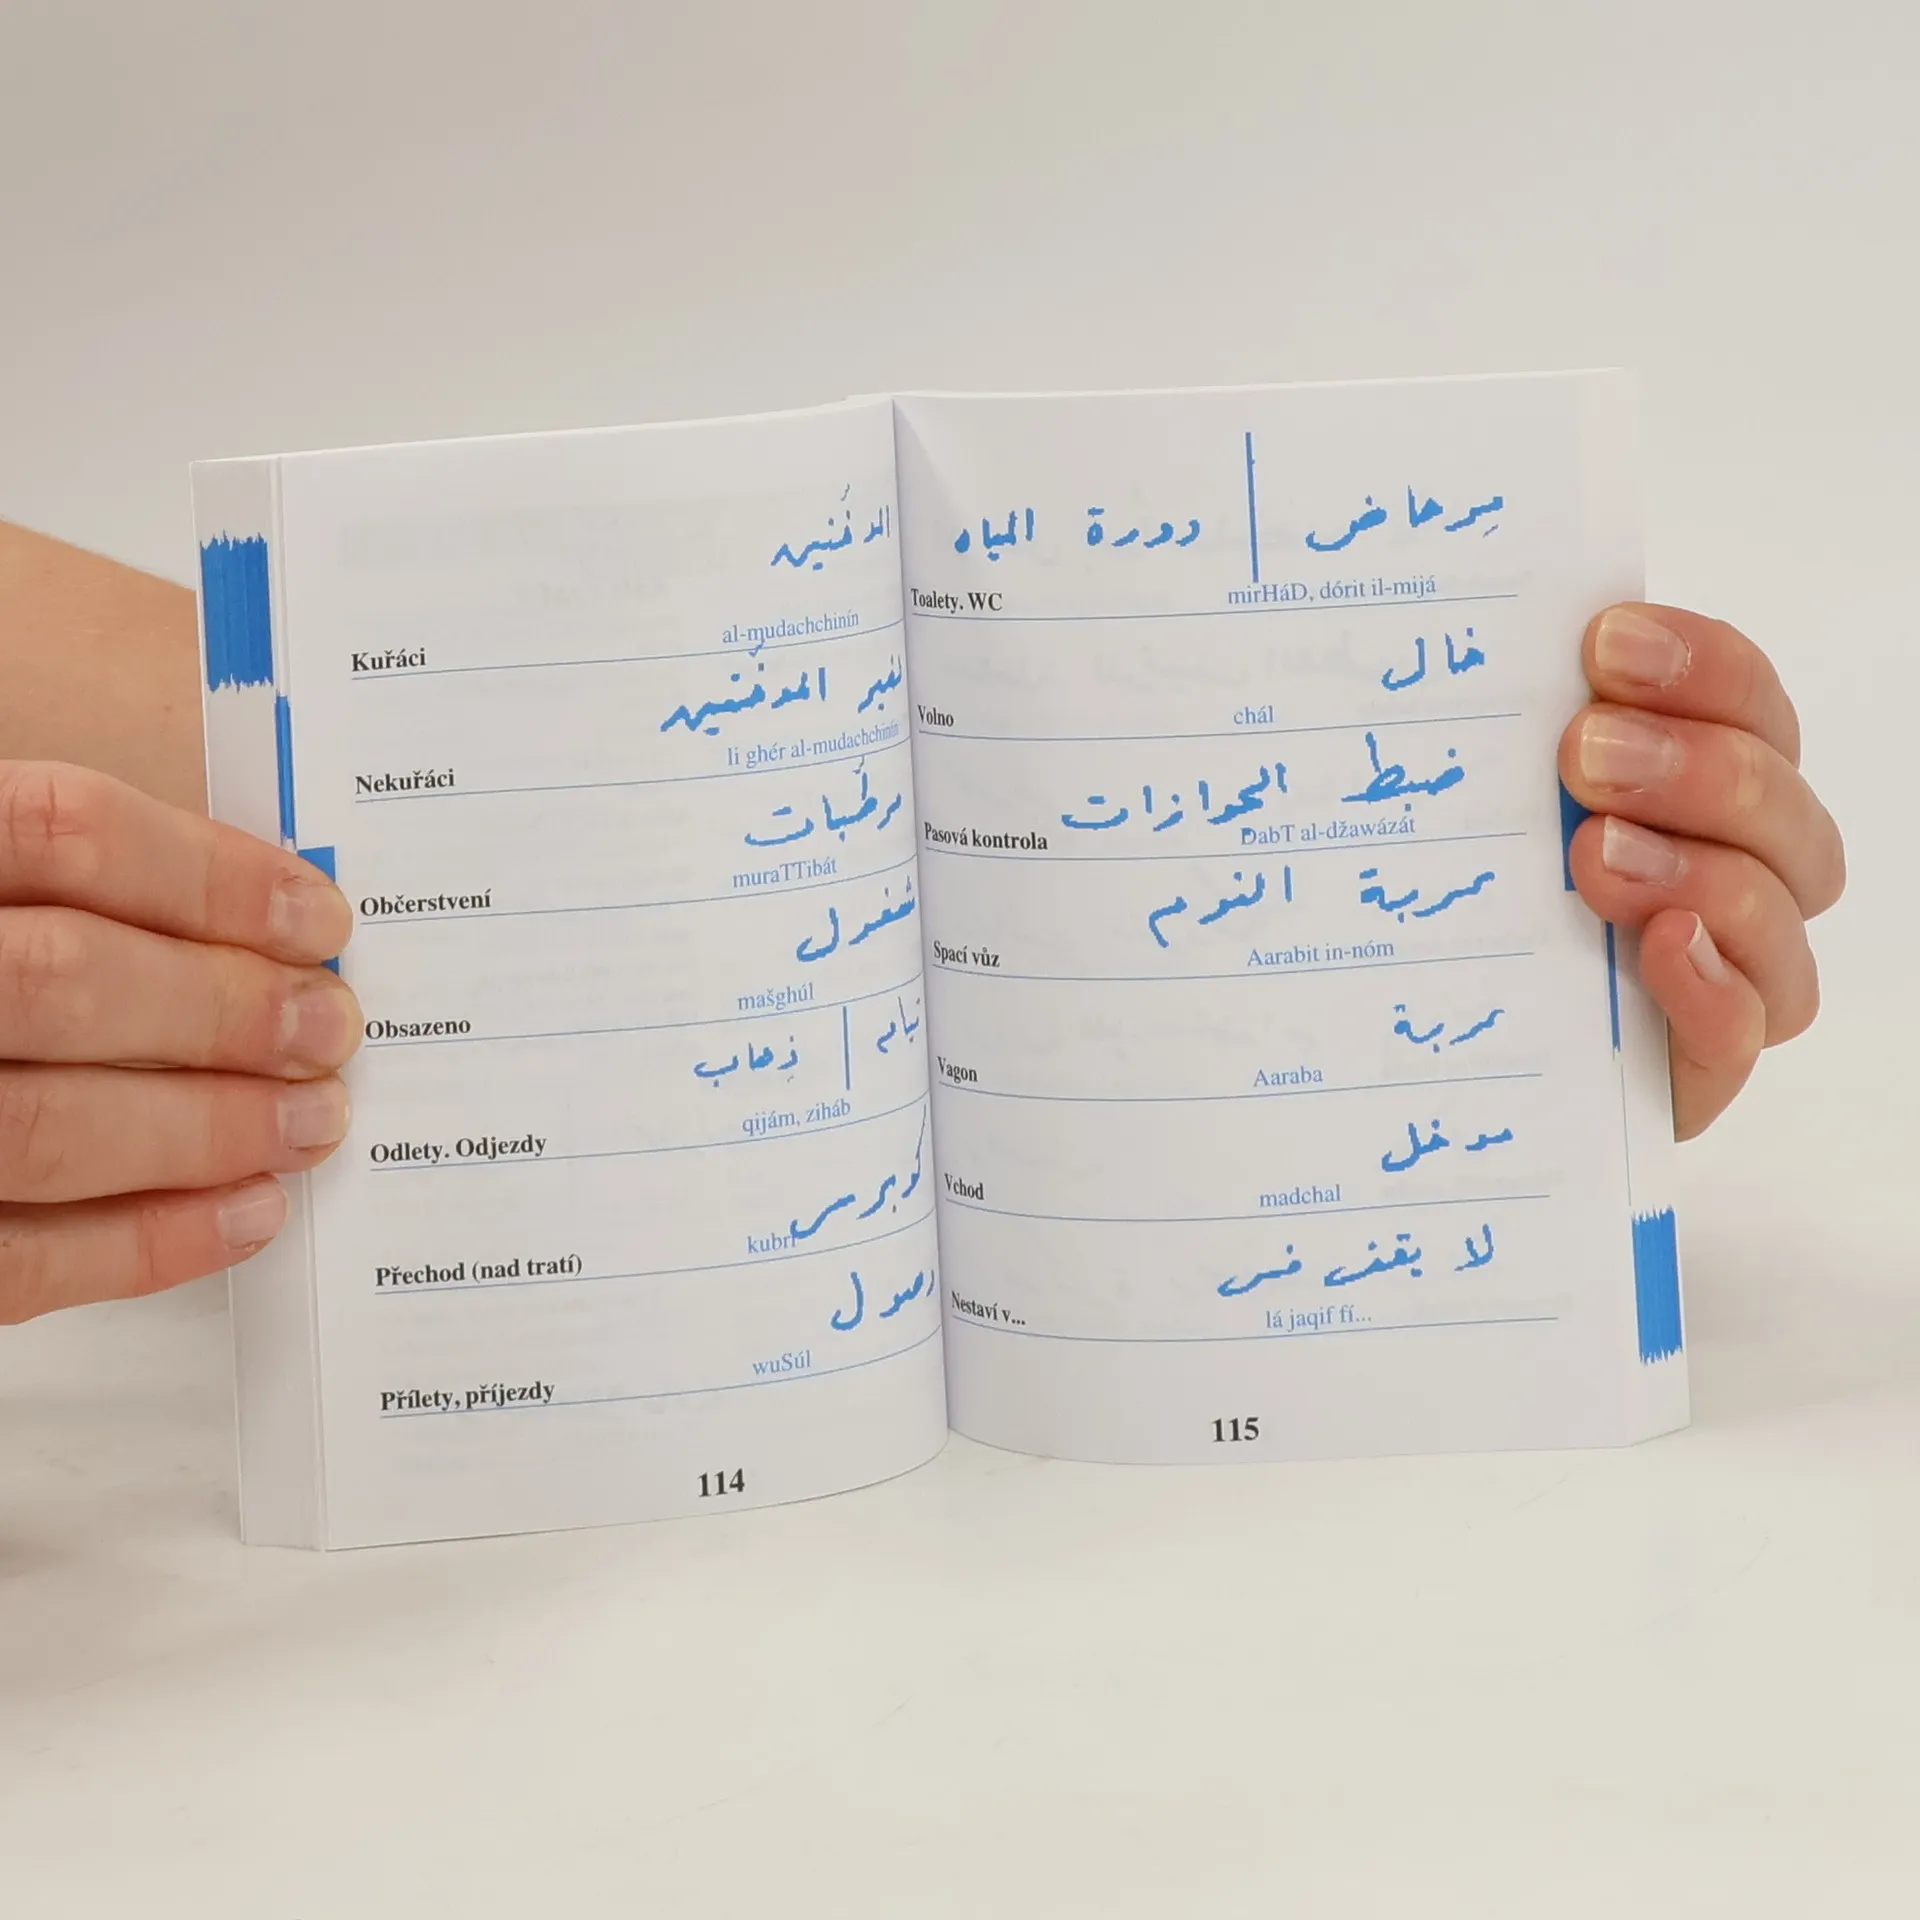 المدخّنين
al-mudachchinín
Kuřáci
لغير المدخّنين
li ghér al-mudachchinín
Nekuřáci
مرطّبات
muraTTibát
Občerstvení
مشغول
mašghúl
Obsazeno
قيام | ذِهاب
qijám, ziháb
Odlety. Odjezdy
كوبرى
kubrí
Přechod (nad tratí)
وصول
wuSúl
Přílety, příjezdy
114
مِرحاض | دورة المياه
mirHáD, dórit il-mijá
Toalety. WC
خال
chál
Volno
ضبط الجوازات
DabT al-džawázát
Pasová kontrola
عربية النوم
Aarabit in-nóm
Spací vůz
عربية
Aaraba
Vagon
مدخل
madchal
Vchod
لا يقف فى
lá jaqif fí...
Nestaví v...
115